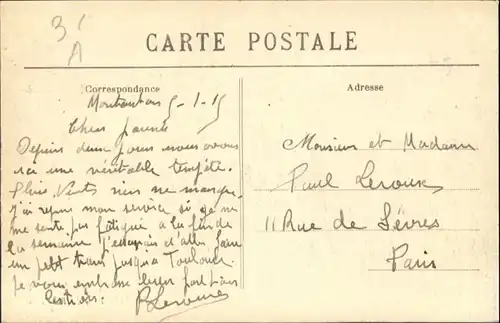 3
A
CARTE POSTALE
Correspondance
Adresse
Montauban 5-1-15
Chers parents
Depuis deux jours nous avons
ici une véritable tempête.
Pluie Vents rien ne manque.
J'ai repris mon service si je ne
me sente pas fatigué a la fin de
la semaine j'essayerai d'aller faire
un petit tour jusqu'a Toulouse.
Je vous embrasse bien fort
Leroux
Monsieur et Madame
Paul Leroux
11 Rue de Sèvres
Paris